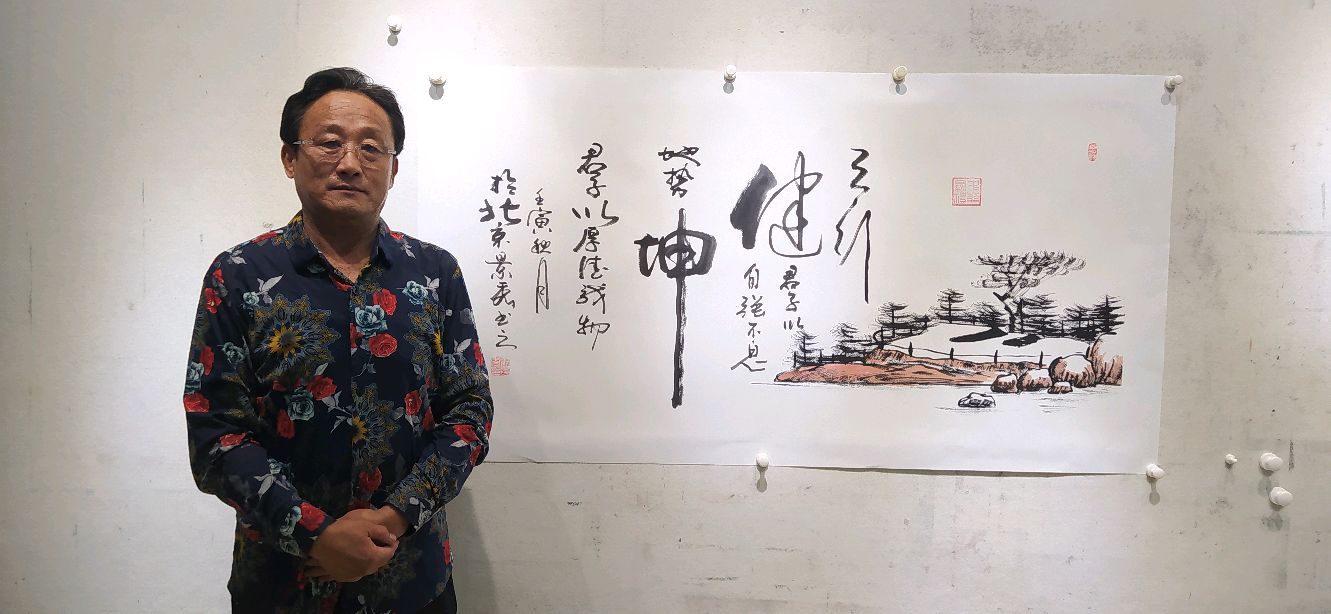 天行
健
君子以
自强不息
地势
坤
君子以厚德载物
壬寅秋月
於北京景书之